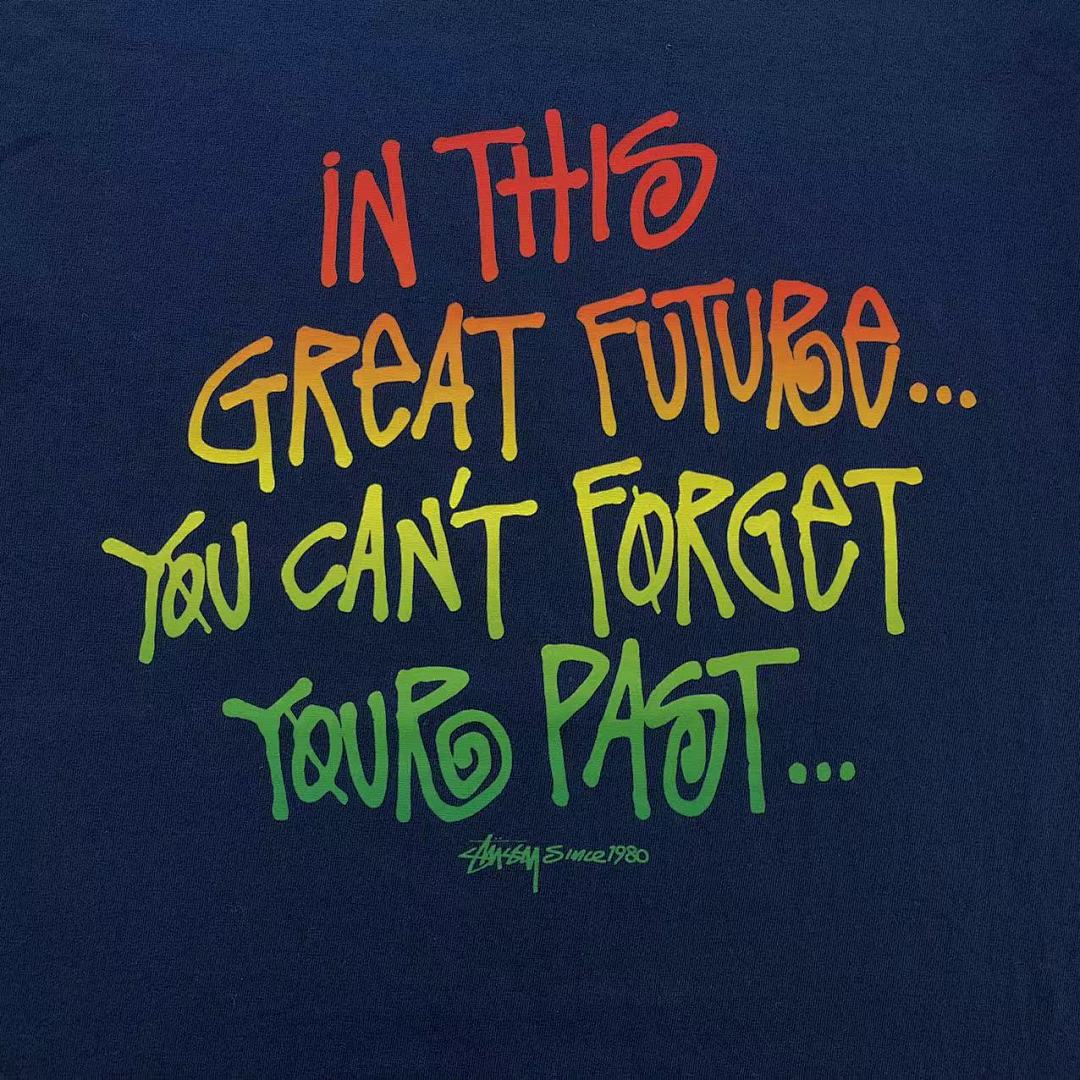 iN THIS
GREAT FUTURE...
YOU CAN'T FORGET
YOUR PAST...
Stüssy Since 1980